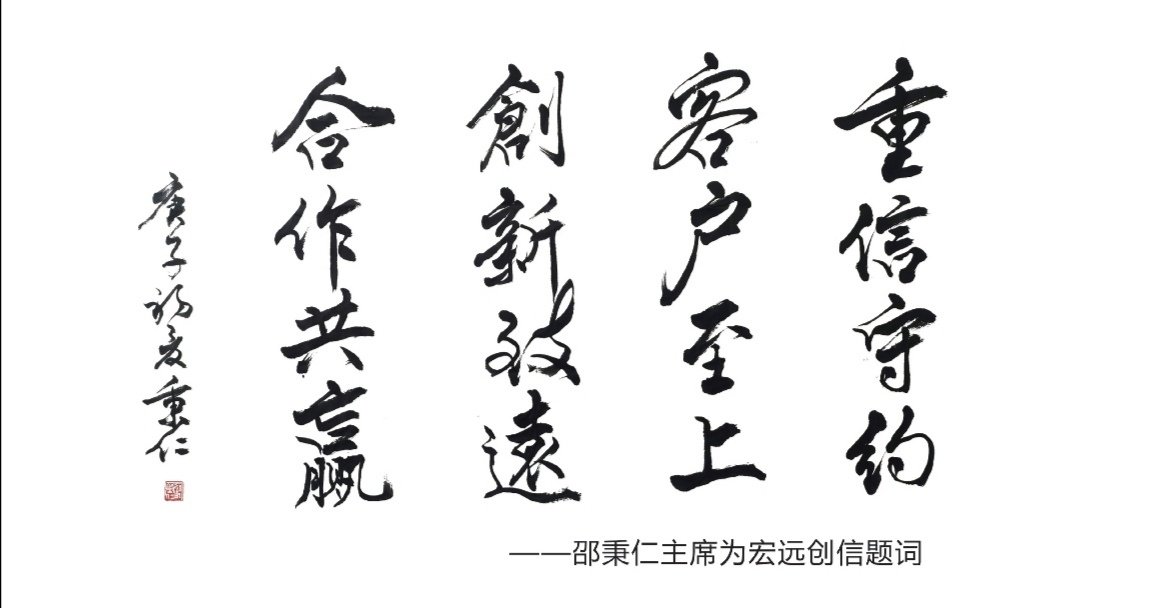 重信守约
客户至上
創新致遠
合作共赢
庚子初夏秉仁
——邵秉仁主席为宏远创信题词